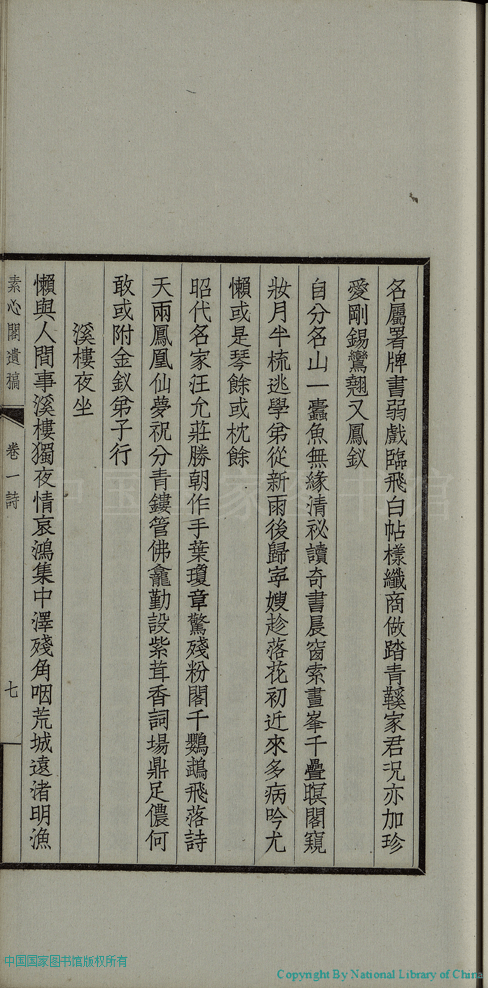 名屬署牌書弱戲臨飛白帖樣纖商做踏青鞵家君况亦加珍
愛剛錫鸞翹又鳳釵
自分名山一蠹魚無緣清祕讀奇書晨窗索畫峯千疊暝閣窺
妝月半梳逃學弟從新雨後歸寧嫂趁落花初近來多病吟尤
懶或是琴餘或枕餘
昭代名家汪允莊勝朝作手葉瓊章驚殘粉閣千鸚鵡飛落詩
天兩鳳凰仙夢祝分青鏤管佛龕勤設紫茸香詞場鼎足儂何
敢或附金釵弟子行
溪樓夜坐
懶與人間事溪樓獨夜情哀鴻集中澤殘角咽荒城遠渚明漁
素心閣遺稿
卷一詩
七
中国国家图书馆
中国国家图书馆版权所有
Copyright By National Library of China